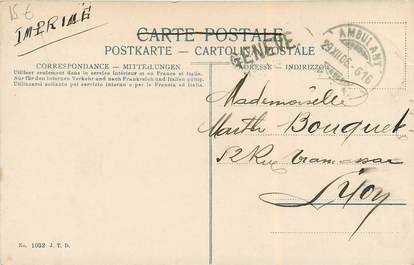 15 €
IMPRIMÉ
CARTE POSTALE
POSTKARTE – CARTOLINA POSTALE
CORRESPONDANCE – MITTEILUNGEN
ADRESSE – INDIRIZZO
Utilisez seulement dans le service intérieur et en France et Italie.
Nur für den inneren Verkehr und nach Frankreich und Italien gültig.
Utilizzarsi soltanto pel servizio interno e per la Francia ed Italia.
GENÈVE
AMBULANT
29.XII.05 – 616
1.
Mademoiselle
Marthe Bouquet
52 Rue
Lyon
No. 1032 J. T. D.